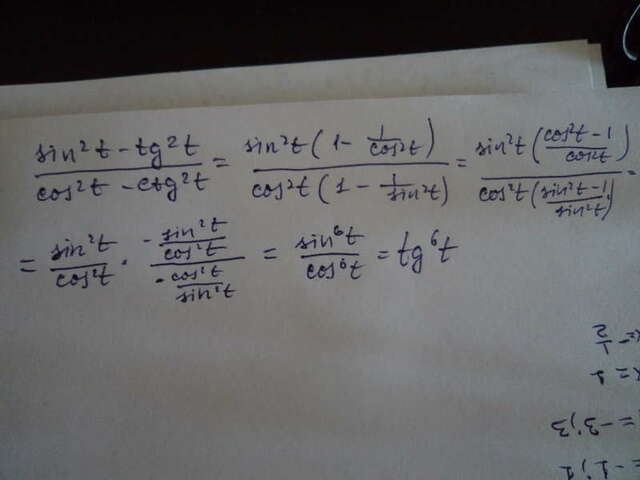 (sin²t - tg²t)/(cos²t - ctg²t) = (sin²t(1 - 1/cos²t))/(cos²t(1 - 1/sin²t)) = (sin²t((cos²t - 1)/cos²t))/(cos²t((sin²t - 1)/sin²t)) =
= sin²t/cos²t · (-sin²t/cos²t)/(-cos²t/sin²t) = sin⁶t/cos⁶t = tg⁶t
1/2
= 1
= -3; 3
= -1; 1